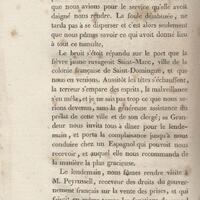 que nous avions pour le service qu'elle avoit
daigné nous rendre. La foule désabusée, ne
tarda pas à se disperser et c'est alors seulement
que nous pûmes savoir ce qui avoit donné lieu
à tout ce tumulte.
Le bruit s'étoit répandu sur le port que la
fièvre jaune ravageoit Saint-Marc, ville de la
colonie françoise de Saint-Domingue, et que
nous en venions. Aussitôt les têtes s'échauffent,
la terreur s'empare des esprits, la malveillance
s'en mêla, et je ne sais pas trop ce que nous
devenions, sans la généreuse assistance du
prélat de cette ville et de son clergé; sa Gran-
deur nous invita tous à dîner pour le lende-
main, et porta la complaisance jusqu'à nous
conduire chez un Espagnol qui pouvoit nous
recevoir, et auquel elle nous recommanda de
la manière la plus gracieuse.
Le lendemain, nous fûmes rendre visite à
M. Peyrussell, receveur des droits du gouver-
nement français sur la vente des prises, et qui